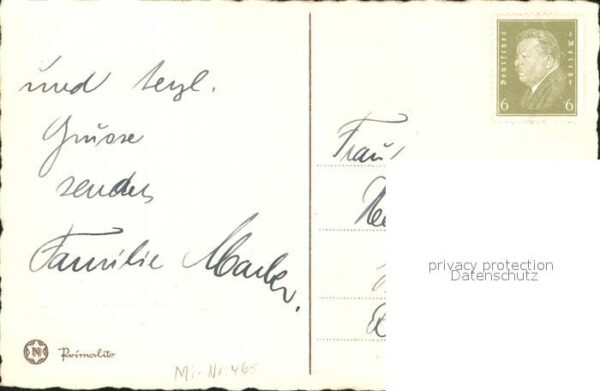 und herzl.
Grüsse
sendet
Familie
Frau
Deutsches Reich
6 6
privacy protection
Datenschutz
N Primalito
Mi-Nr. 465